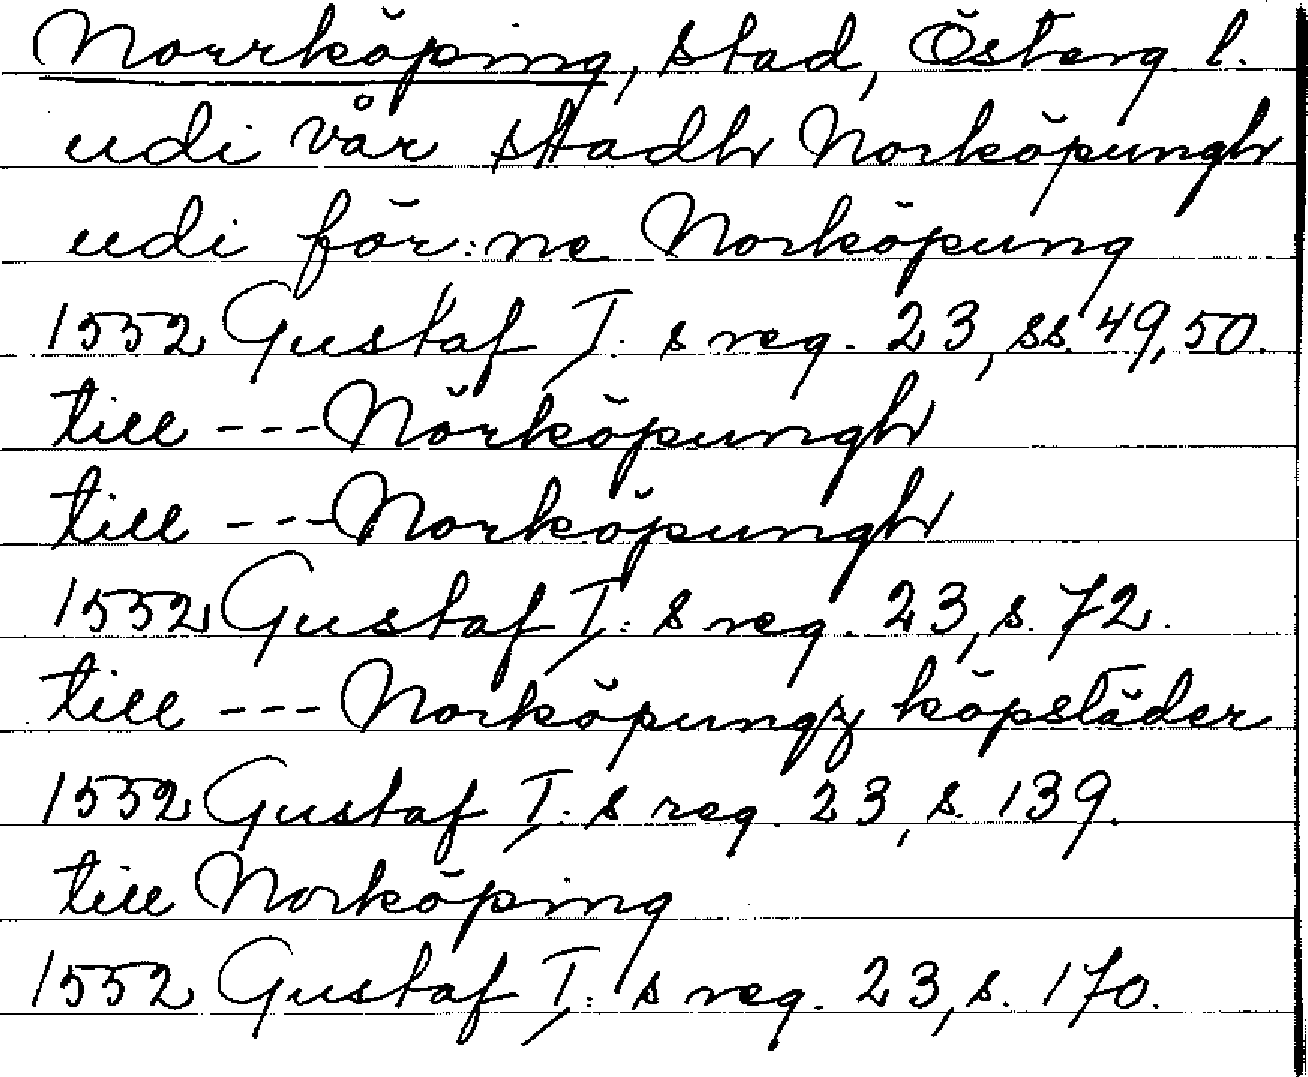 Norrköping, stad, Österg l.
udi vår stadh Norköpungh
udi för:ne Norköpung
1552 Gustaf I: s reg. 23, ss. 49, 50.
till --- Nörköpungh
till --- Norköpungh
1552 Gustaf I: s reg. 23, s. 72.
till --- Norköpungz köpstäder
1552 Gustaf I: s reg. 23, s. 139.
till Norköping
1552 Gustaf I: s reg. 23, s. 170.